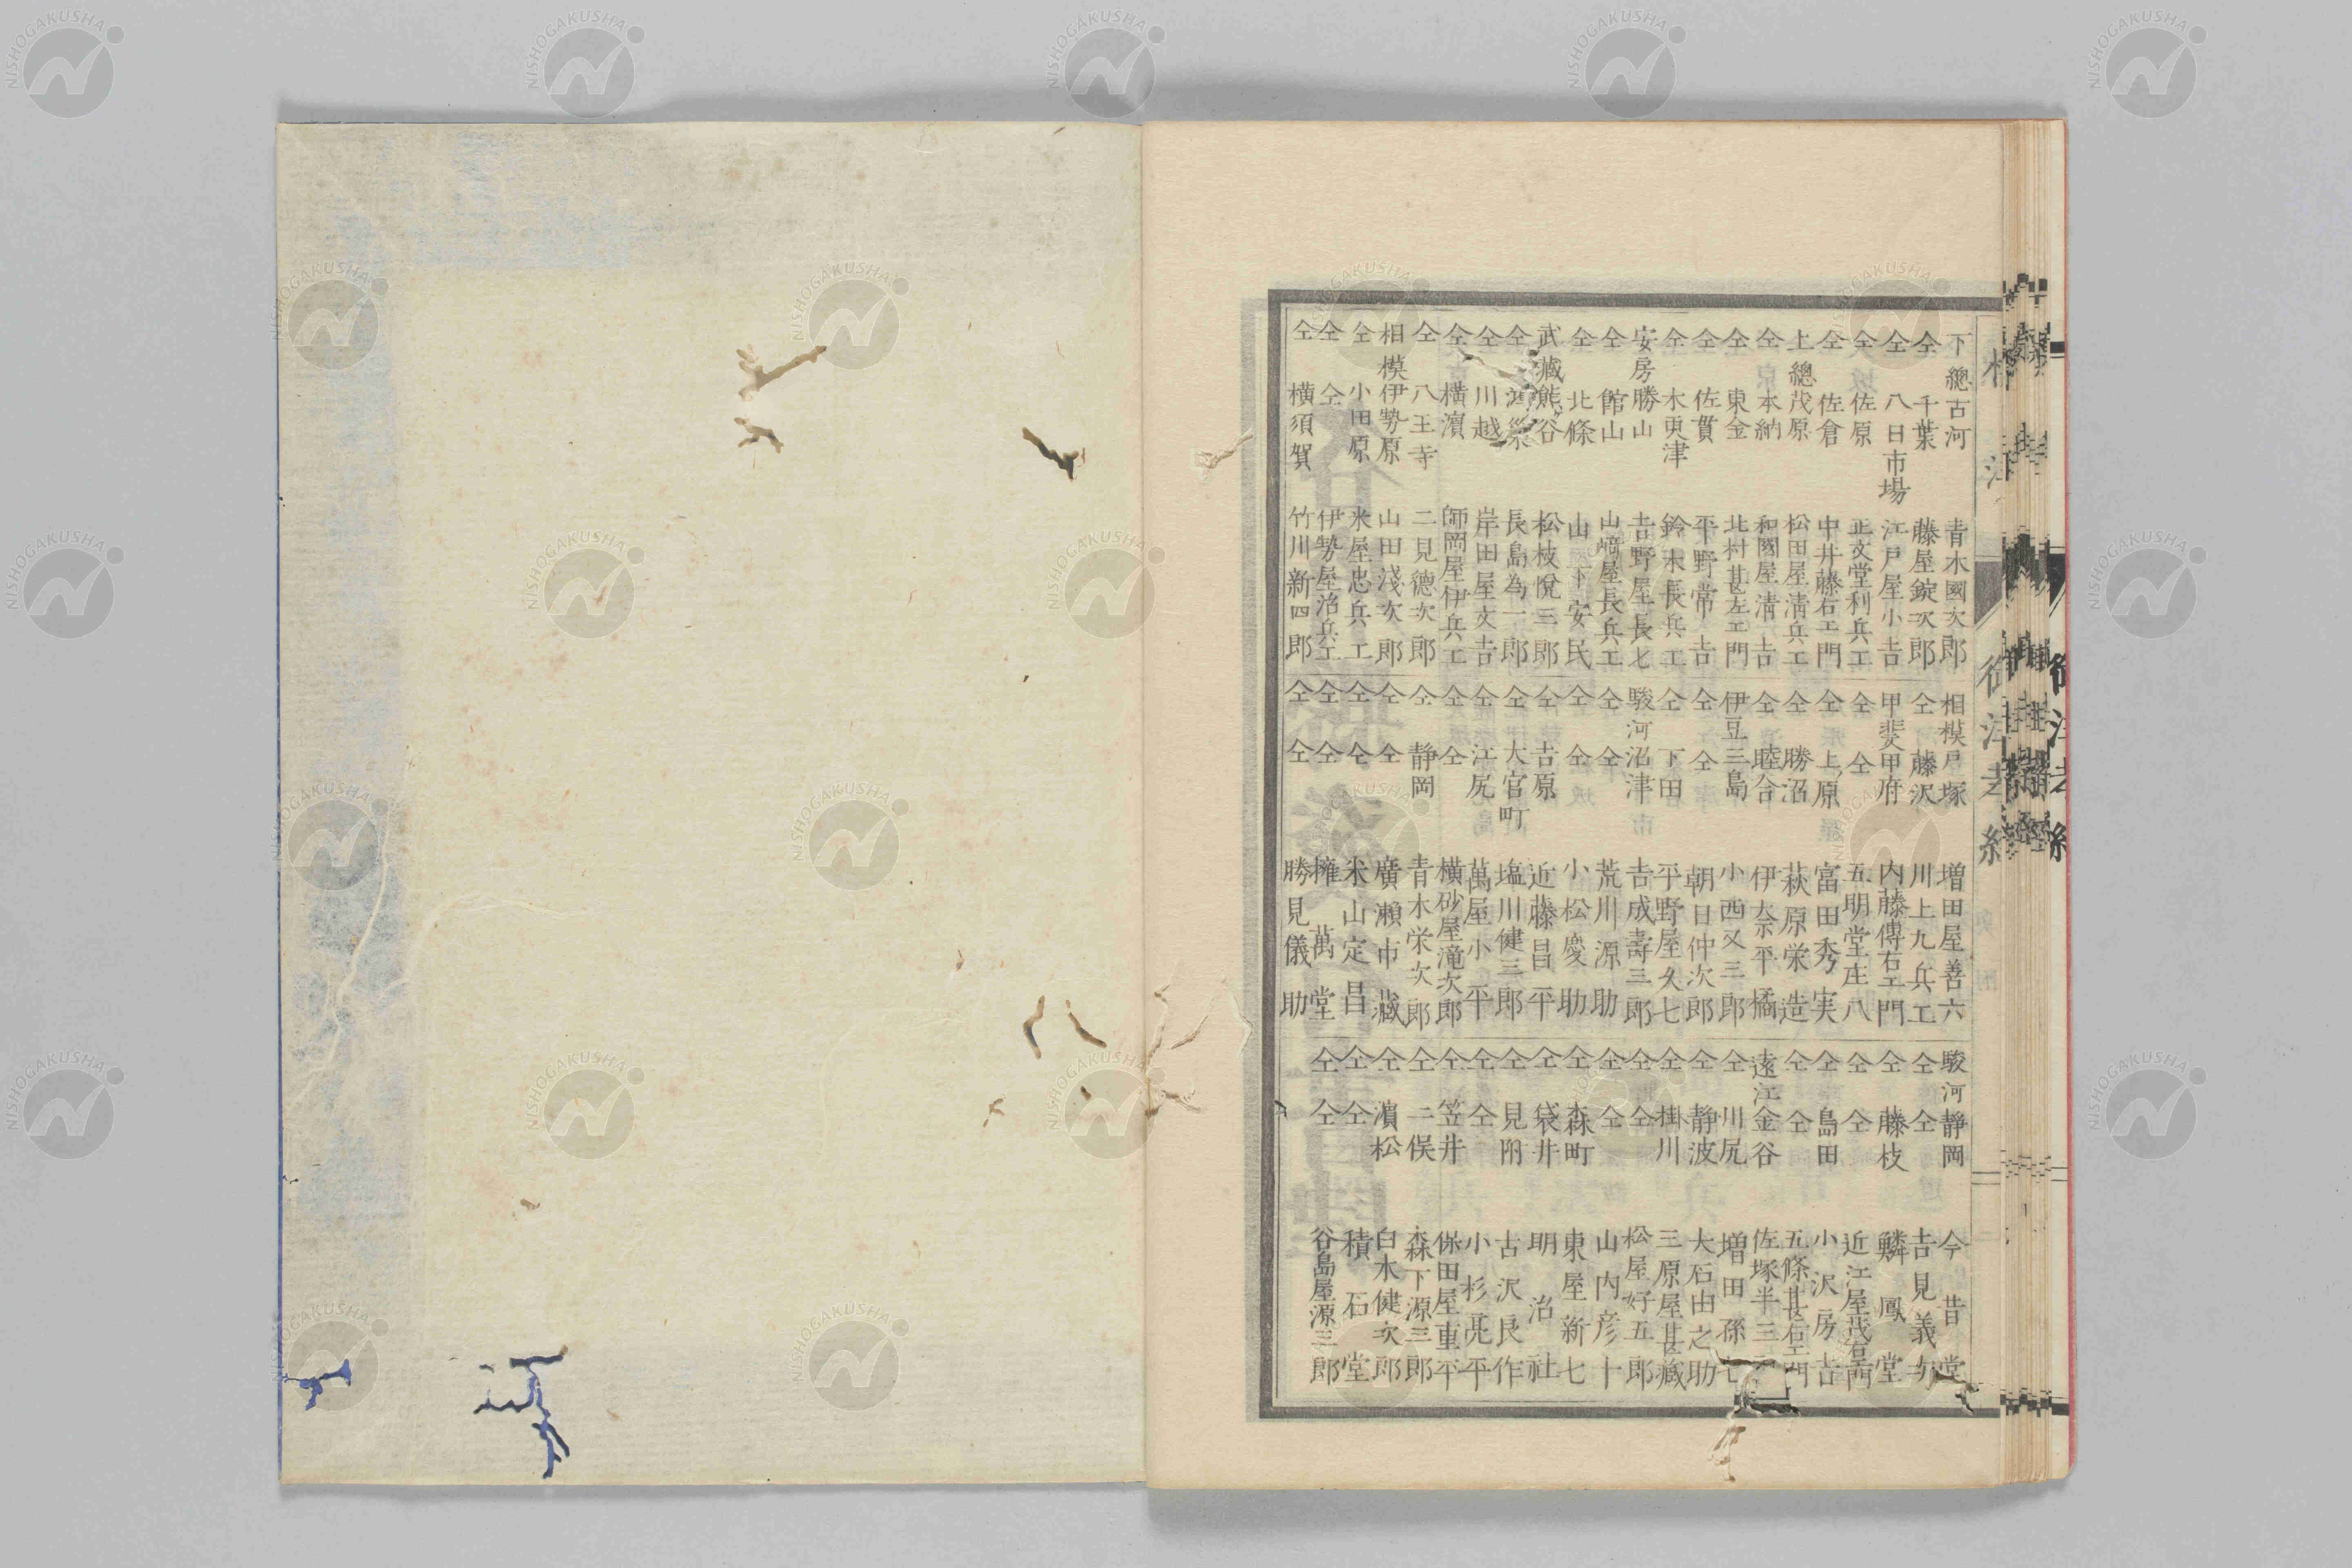 下總古河 青木國次郎
仝 千葉 藤屋錠次郎
仝 八日市場 江戸屋小吉
仝 佐原 正文堂利兵エ
仝 佐倉 中井藤右エ門
上總茂原 松田屋清兵エ
仝 本納 和國屋清吉
仝 東金 北村甚左エ門
仝 佐貫 平野常吉
仝 木更津 鈴木長兵エ
安房勝山 吉野屋長七
仝 館山 山﨑屋長兵エ
仝 北條 山下安民
武藏熊谷 松枝悅三郎
仝 鴻巣 長島為一郎
仝 川越 岸田屋文吉
仝 横濵 師岡屋伊兵エ
仝 八王寺 二見徳次郎
相模伊勢原 山田淺次郎
仝 小田原 米屋忠兵エ
仝 仝 伊勢屋治兵エ
仝 横須賀 竹川新四郎
相模戸塚 増田屋善六
仝 藤沢 川上九兵エ
甲斐甲府 内藤傳右エ門
仝 仝 五明堂庄八
仝 上原 富田秀実
仝 勝沼 萩原栄造
仝 睦合 伊奈平橘
伊豆三島 小西又三郎
仝 仝 朝日仲次郎
仝 下田 平野屋久七
駿河沼津 吉成壽三郎
仝 仝 荒川源助
仝 仝 小松慶助
仝 吉原 近藤昌平
仝 大宮町 塩川健三郎
仝 江尻 萬屋小平
仝 仝 横砂屋滝次郎
仝 静岡 青木栄次郎
仝 仝 廣瀬市藏
仝 仝 米山定昌
仝 仝 擁萬堂
仝 仝 勝見儀助
駿河静岡 今昔堂
仝 仝 吉見義次
仝 藤枝 鱗鳳堂
仝 仝 近江屋茂右エ門
仝 島田 小沢房吉
仝 仝 五條甚右エ門
遠江金谷 佐塚半三
仝 川尻 増田孫七
仝 静波 大石由之助
仝 掛川 三原屋甚藏
仝 仝 松屋好五郎
仝 仝 山内彦十
仝 森町 東屋新七
仝 袋井 明治社
仝 見附 古沢良作
仝 仝 小杉亮平
仝 笠井 保田屋重平
仝 二俣 森下源三郎
仝 濵松 白木健次郎
仝 仝 積石堂
仝 仝 谷島屋源三郎
NISHOGAKUSHA